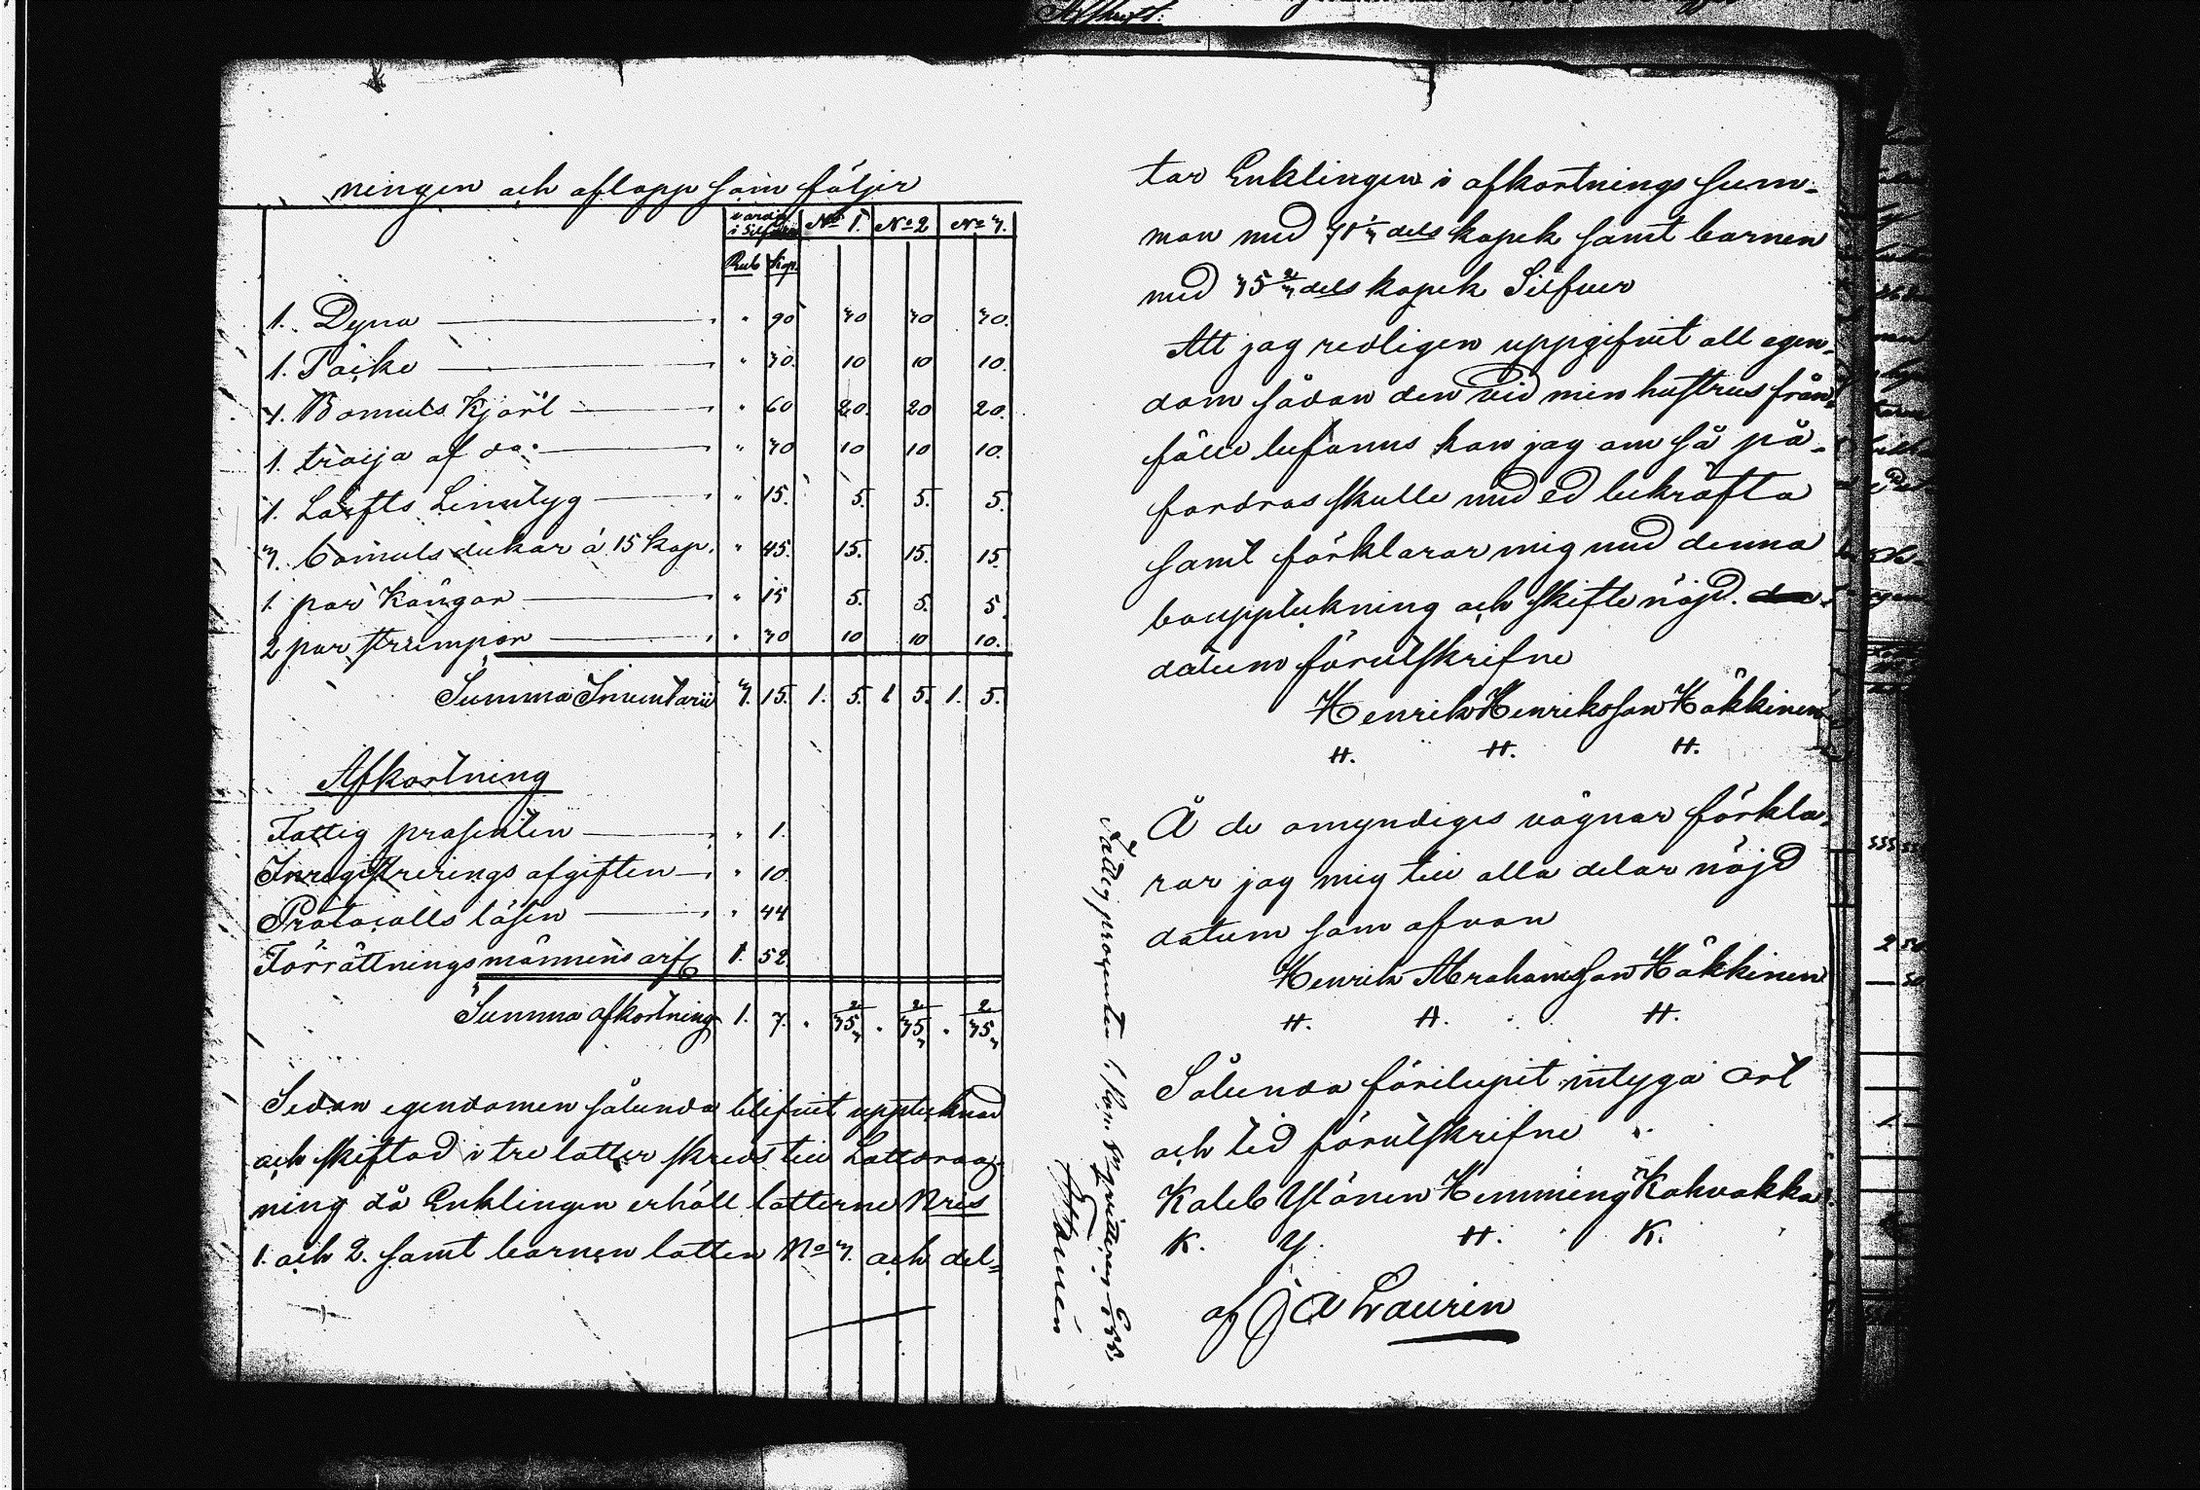 ningen och aflopp som följer
värde i Silfver No 1. No 2 No 3.
Rub Kop.
1. Dyna " 90 30 30 30.
1. Täcke " 30. 10 10 10.
1. Bomuls Kjört " 60 20. 20 20.
1. tröija af do. " 30 10 10 10.
1. Lärfts Linntyg " 15. 5. 5. 5.
3. bomulsdukar á 15 kop. " 45. 15. 15. 15.
1 par Kängor " 15 5. 5. 5.
2 par strumpor " 30 10 10 10.
Summa Inventarii 3. 15. 1. 5. 1 5. 1. 5.
Afkortning
Fattig prosenten " 1.
Inregistrerings afgiften " 10.
Protocolls lösen " 44
Förrättningsmännens arf 1. 52.
Summa afkortning 1. 7. " 35 2/3 " 35 2/3 " 35 2/3
Sedan egendomen sålunda blifvit upptecknad
och skiftad i tre lotter skreds till Lottdrag-
ning då Enklingen erhöll lotterne Nris
1. och 2. samt barnen lotten No 3. och del-
tar Enklingen i afkortnings sum-
man med 71 1/3 dels kopek samt barnen
med 35 2/3 dels kopek Silfver
Att jag redligen uppgifvit all egen-
dom sådan den vid min hustrus från-
fälle befanns kan jag om så på-
fordras skulle med ed bekräfta
samt förklarar mig med denna
bouppteckning och skifte nöjd.
datum förutskrifne
Henrik Henriksson Häkkinen
H. H. H.
Å de omyndiges vägnar förkla-
rar jag mig till alla delar nöjd
datum som ofvan
Henrik Abrahamsson Häkkinen
H. A. H.
Sålunda förelupit intyga Ort
och tid förutskrifne
Kaleb Ylönen Hemming Kakvakka
K. Y. H. K.
af J A Laurin
Fattig procenten 1. Kop.